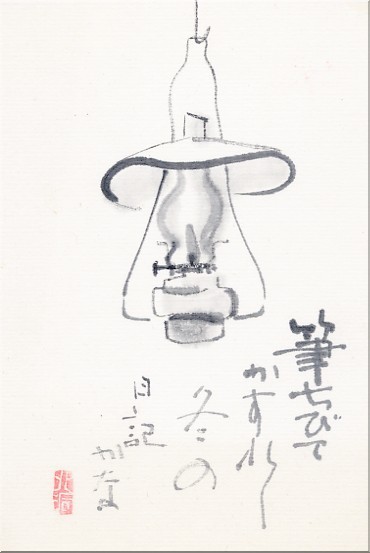 筆ちびて
かすれし
冬の
日記
かな